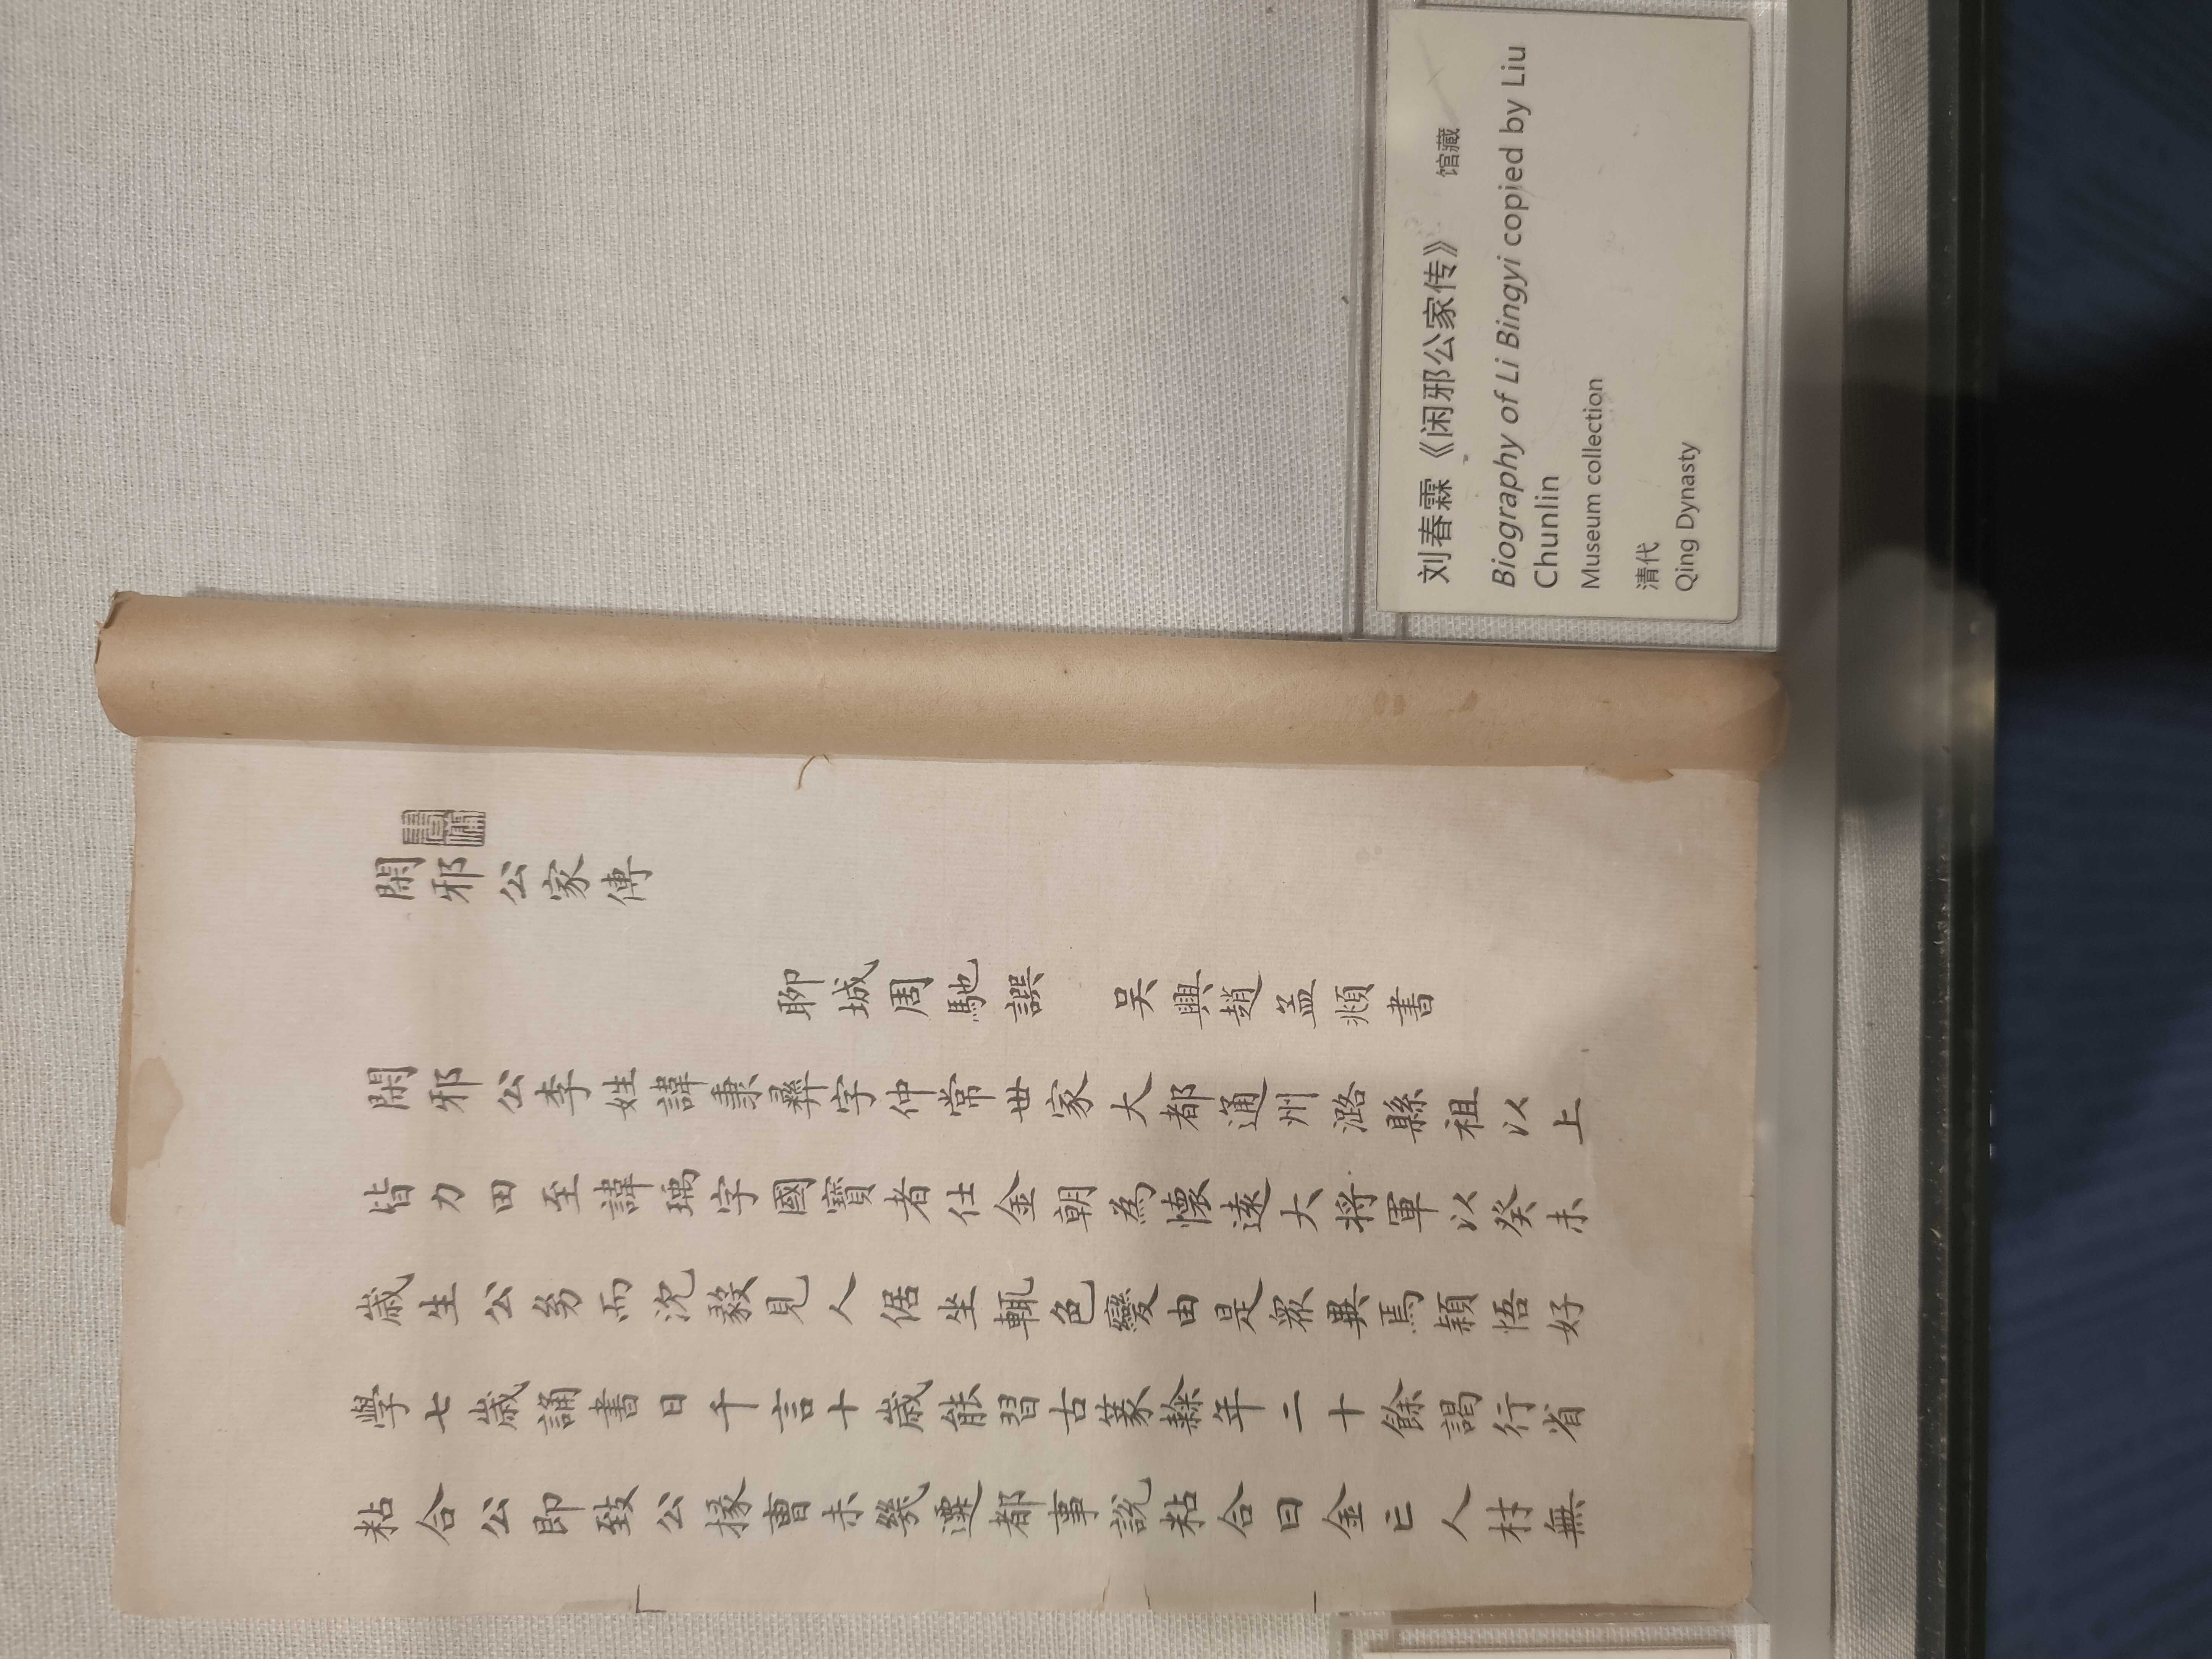 閑邪公家傳
聊城周馳譔 吴興趙孟頫書
閑邪公李姓諱秉彝字仲常世家大都通州潞縣祖以上
皆力田至諱瑀字國寶者仕金朝為懷遠大將軍以癸未
歲生公㓜而沈毅見人倨坐輒色變由是衆異焉穎悟好
學七歲誦書日千言十歲能習古篆隸年二十餘謁行省
粘合公即致公掾曹未幾遷都事說粘合曰金亡人材無
刘春霖《闲邪公家传》 馆藏
Biography of Li Bingyi copied by Liu
Chunlin
Museum collection
清代
Qing Dynasty